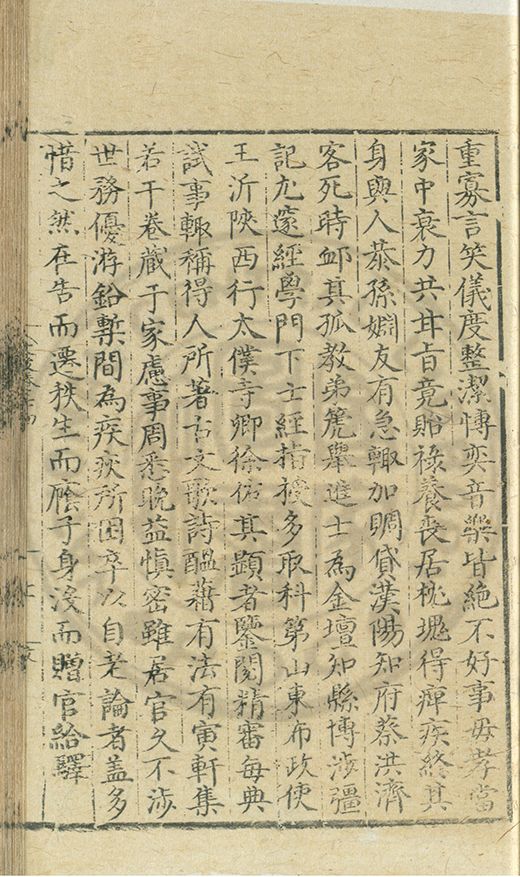 重寡言笑儀度整潔博奕音樂皆絕不好事母孝當
家中衰力共甘旨竟貽祿養喪居枕塊得痺疾終其
身與人恭孫婣友有急輙加賙貸漢陽知府蔡洪濟
客死時卹其孤教弟箎舉進士為金壇知縣博涉彊
記尤邃經學門下士經指授多取科第山東布政使
王沂陝西行太僕寺卿徐 其顯者鑒閱精審每典
試事輙稱得人所著古文歌詩醞藉有法有寅軒集
若干卷藏于家慮事周悉晚益慎密雖居官久不涉
世務優游鉛槧間為疾疢所困卒以自老論者盖多
惜之然在告而遷秩生而廕子身沒而贈官給驛